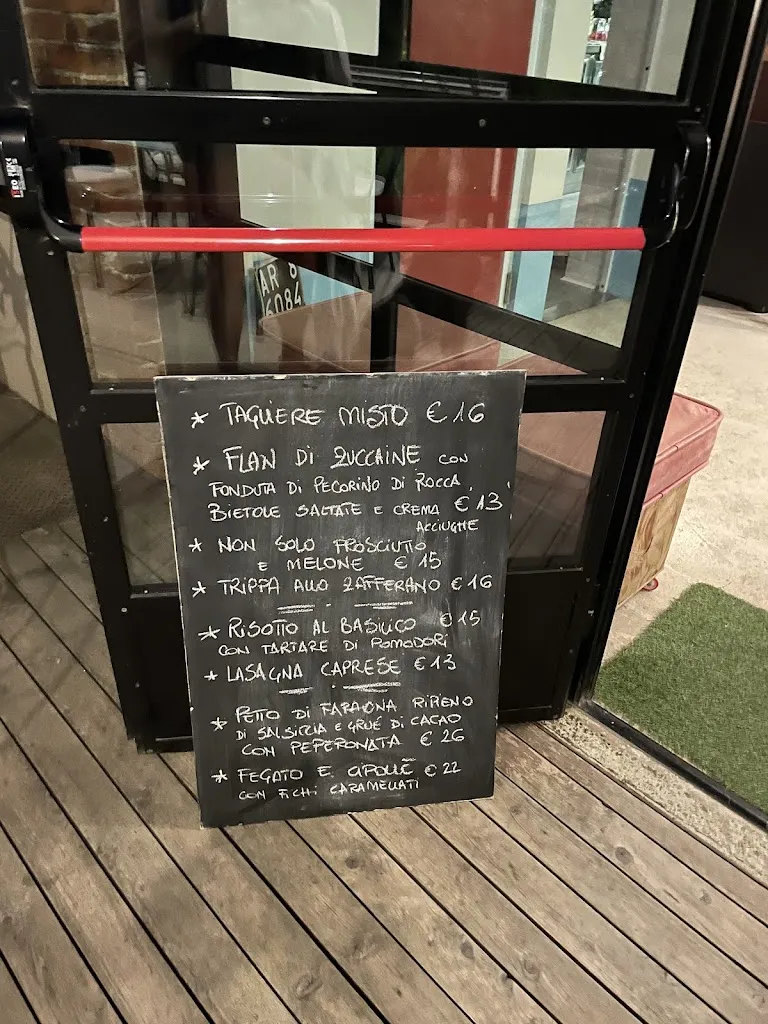 AR 8
6084
* TAGLIERE MISTO € 16
* FLAN DI ZUCCAINE CON
FONDUTA DI PECORINO DI ROCCA,
BIETOLE SALTATE E CREMA € 13
ACCIUGHE
* NON SOLO PROSCIUTTO
E MELONE € 15
* TRIPPA ALLO ZAFFERANO € 16
* RISOTTO AL BASILICO € 15
CON TARTARE DI POMODORI
* LASAGNA CAPRESE € 13
* PETTO DI FARAONA RIPIENO
DI SALSICCIA E GRUÉ DI CACAO
CON PEPERONATA € 26
* FEGATO E CIPOLLE € 22
CON FICHI CARAMELLATI